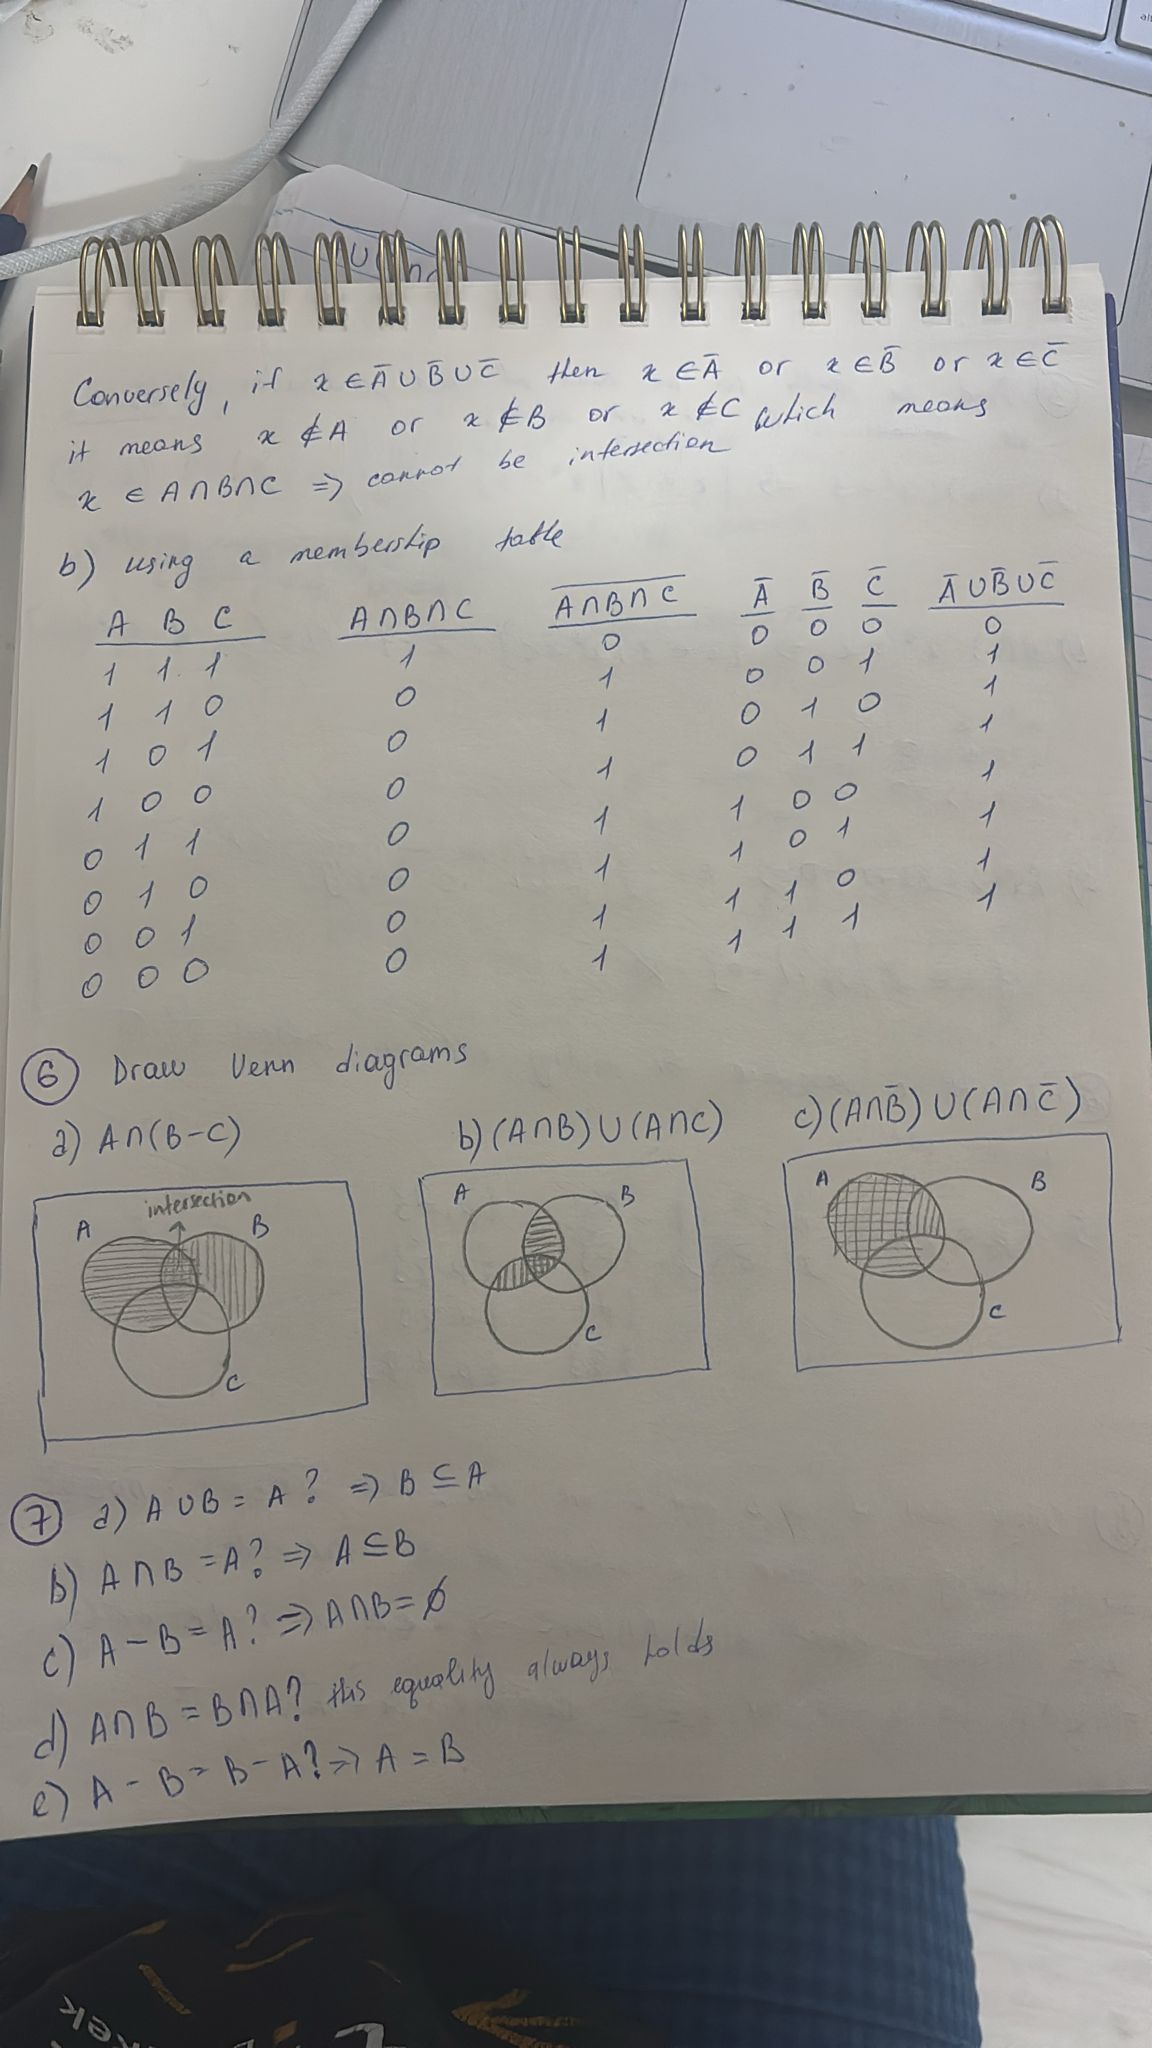 Conversely, if x ∈ A̅ ∪ B̅ ∪ C̅ then x ∈ A̅ or x ∈ B̅ or x ∈ C̅
it means x ∉ A or x ∉ B or x ∉ C which means
x ∈ A∩B∩C ⇒ cannot be intersection
b) using a membership table
A B C | A∩B∩C | \overline{A∩B∩C} | A̅ B̅ C̅ | A̅ ∪ B̅ ∪ C̅
1 1 1 | 1 | 0 | 0 0 0 | 0
1 1 0 | 0 | 1 | 0 0 1 | 1
1 0 1 | 0 | 1 | 0 1 0 | 1
1 0 0 | 0 | 1 | 0 1 1 | 1
0 1 1 | 0 | 1 | 1 0 0 | 1
0 1 0 | 0 | 1 | 1 0 1 | 1
0 0 1 | 0 | 1 | 1 1 0 | 1
0 0 0 | 0 | 1 | 1 1 1 | 1
6 Draw Venn diagrams
a) A∩(B−C) b) (A∩B)∪(A∩C) c) (A∩B̅)∪(A∩C̅)
intersection
A B C
A B C
A B C
7 a) A∪B = A? ⇒ B ⊆ A
b) A∩B = A? ⇒ A ⊆ B
c) A − B = A? ⇒ A∩B = ∅
d) A∩B = B∩A? this equality always holds
e) A − B = B − A? ⇒ A = B